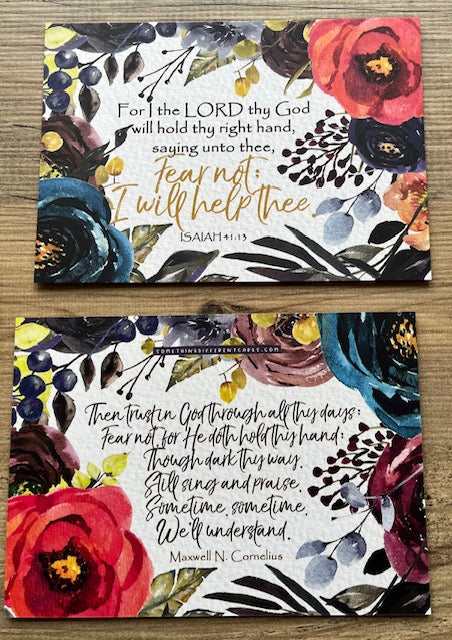 For I the LORD thy God
will hold thy right hand,
saying unto thee,
Fear not:
I will help thee.
ISAIAH 41:13
SOMETHINGDIFFERENTCARDS.COM
Then trust in God through all thy days:
Fear not, for He doth hold thy hand:
Though dark thy way,
Still sing and praise,
Sometime, sometime,
We'll understand.
Maxwell N. Cornelius